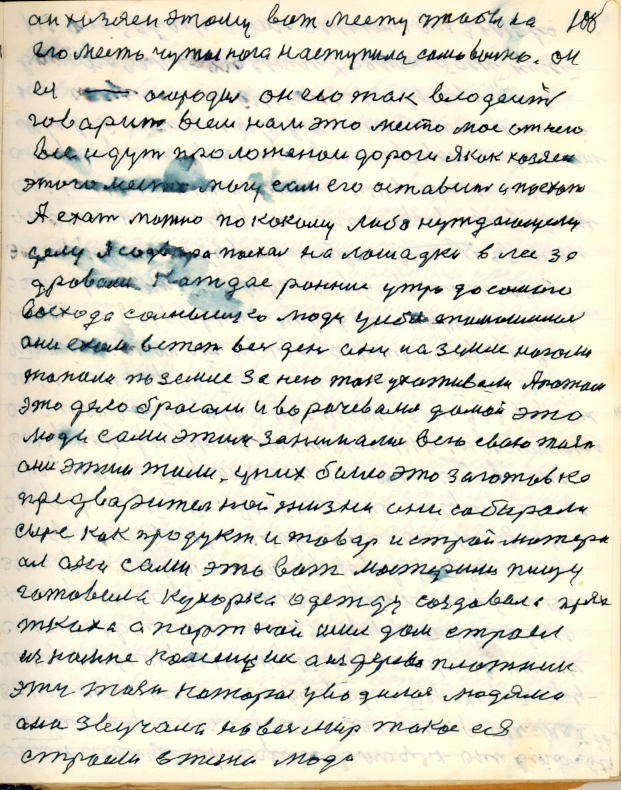 он хозяен этому вот месту чтобы на 108
его месть чутыя нога наступила самовольно. он
ея огородил он его так влодеит
говарит всем нам это место мое от него
все идут проложеной дороги Я как хозяен
этого места могу сам его оставит и поехат
А ехат можно по кокому либо нуждающему
целу Я содвора поехал на лошадки в лес за
дровами. Каждае ранние утра до самого
восхода солнышко люди
они ехали в степ весь ден они на земле
топали по земле за нею так ухаживали А потом
это дело бросали и ворачевалис домой это
люди сами этим занималис всю сваю жизн
они этим жили, у них было это заготовка
предварителной жизни они собирали
сыре как продукт и товар и строй матери
ал они сами это вот мастерили пищу
готовила кухорка одежду создавала пряха
ткаха а портной шил дом строел
из камне каменщик а из дерева плотник
эту жизн которая уводилас людями
она звучала на вес мир такое ея
строели в жизни люди